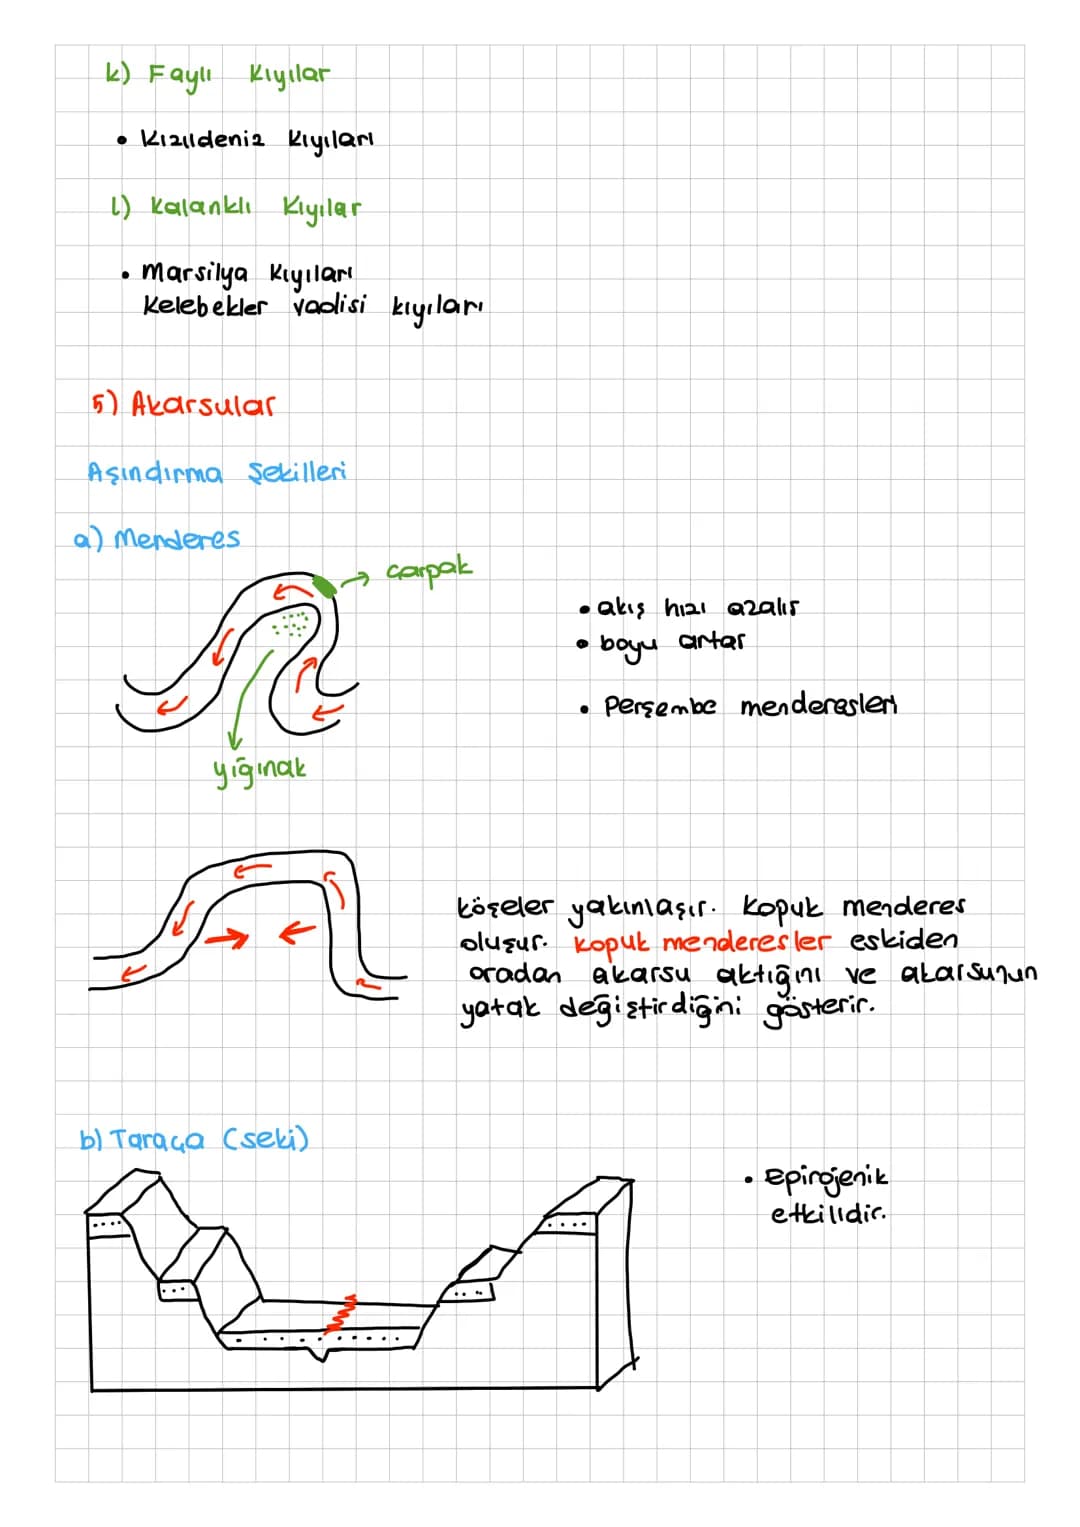 k) Faylı Kıyılar
• Kızıldeniz Kıyıları
l) Kalanklı Kıyılar
• Marsilya Kıyıları
Kelebekler vadisi kıyıları
5) Akarsular
Aşındırma Şekilleri
a) Menderes
çarpak
• akış hızı azalır
• boyu artar
• Perşembe menderesleri
yığınak
köşeler yakınlaşır. Kopuk menderes
oluşur. Kopuk menderesler eskiden
oradan akarsu aktığını ve akarsuyun
yatak değiştirdiğini gösterir.
b) Taraça (seki)
• Epirojenik
etkilidir.